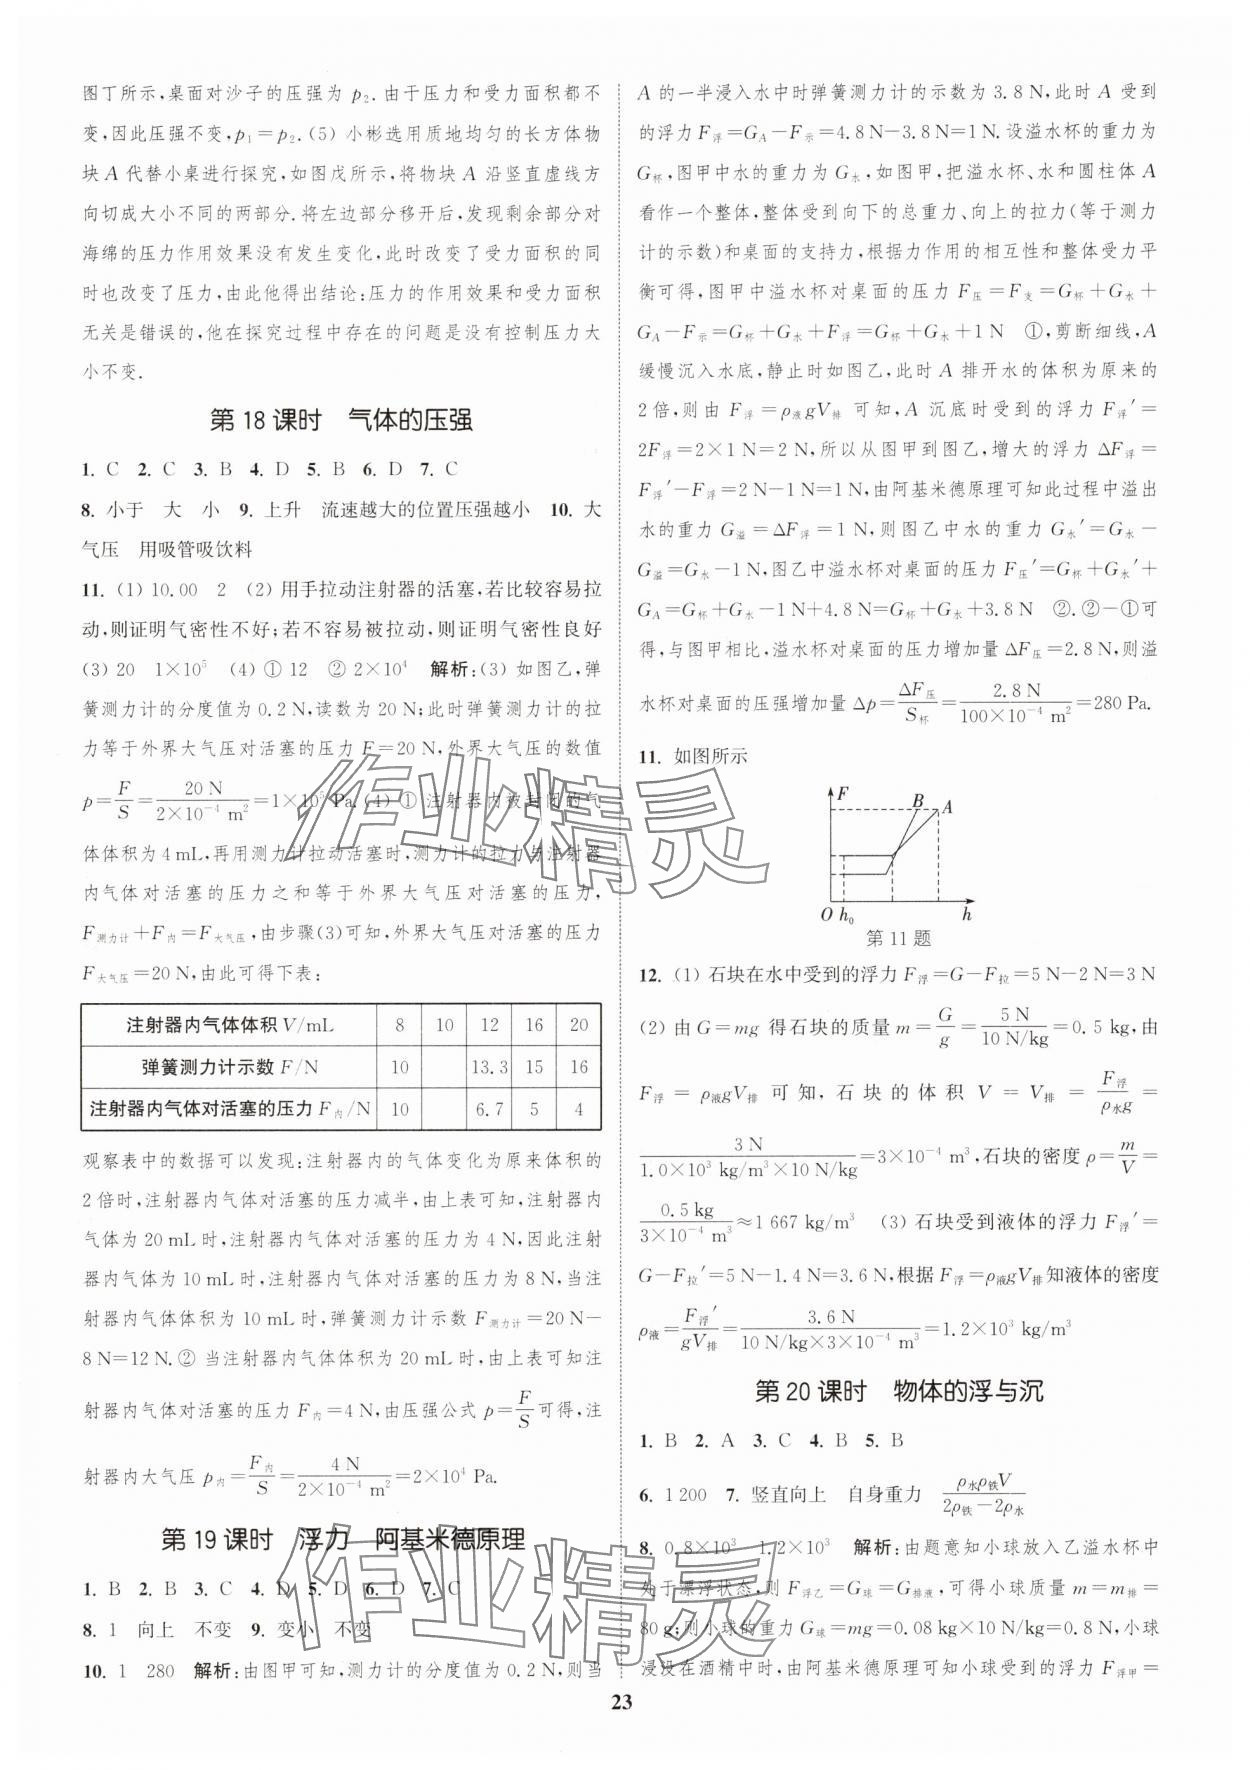 图丁所示,桌面对沙子的压强为 p₂.由于压力和受力面积都不
变,因此压强不变,p₁=p₂.(5) 小彬选用质地均匀的长方体物
块 A 代替小桌进行探究,如图戊所示,将物块 A 沿竖直虚线方
向切成大小不同的两部分.将左边部分移开后,发现剩余部分对
海绵的压力作用效果没有发生变化,此时改变了受力面积的同
时也改变了压力,由此他得出结论:压力的作用效果和受力面积
无关是错误的,他在探究过程中存在的问题是没有控制压力大
小不变.
第 18 课时 气体的压强
1. C 2. C 3. B 4. D 5. B 6. D 7. C
8. 小于 大 小 9. 上升 流速越大的位置压强越小 10. 大
气压 用吸管吸饮料
11. (1) 10.00 2 (2) 用手拉动注射器的活塞,若比较容易拉
动,则证明气密性不好;若不容易被拉动,则证明气密性良好
(3) 20 1×10⁵ (4) ① 12 ② 2×10⁴ 解析:(3) 如图乙,弹
簧测力计的分度值为 0.2 N,读数为 20 N;此时弹簧测力计的拉
力等于外界大气压对活塞的压力 F=20 N,外界大气压的数值
p=F/S=20 N/(2×10⁻⁴ m²)=1×10⁵ Pa.(4) ① 注射器内被封闭的气
体体积为 4 mL,再用测力计拉动活塞时,测力计的拉力与注射器
内气体对活塞的压力之和等于外界大气压对活塞的压力,
F测力计+F内=F大气压,由步骤(3)可知,外界大气压对活塞的压力
F大气压=20 N,由此可得下表:
注射器内气体体积 V/mL 8 10 12 16 20
弹簧测力计示数 F/N 10 13.3 15 16
注射器内气体对活塞的压力 F内/N 10 6.7 5 4
观察表中的数据可以发现:注射器内的气体变化为原来体积的
2 倍时,注射器内气体对活塞的压力减半,由上表可知,注射器内
气体为 20 mL 时,注射器内气体对活塞的压力为 4 N,因此注射
器内气体为 10 mL 时,注射器内气体对活塞的压力为 8 N,当注
射器内气体体积为 10 mL 时,弹簧测力计示数 F测力计=20 N-
8 N=12 N.② 当注射器内气体体积为 20 mL 时,由上表可知注
射器内气体对活塞的压力 F内=4 N,由压强公式 p=F/S 可得,注
射器内大气压 p内=F内/S=4 N/(2×10⁻⁴ m²)=2×10⁴ Pa.
第 19 课时 浮力 阿基米德原理
1. B 2. B 3. C 4. D 5. D 6. D 7. C
8. 1 向上 不变 9. 变小 不变
10. 1 280 解析:由图甲可知,测力计的分度值为 0.2 N,则当
A 的一半浸入水中时弹簧测力计的示数为 3.8 N,此时 A 受到
的浮力 F浮=G_A-F示=4.8 N-3.8 N=1 N.设溢水杯的重力为
G杯,图甲中水的重力为 G水,如图甲,把溢水杯、水和圆柱体 A
看作一个整体,整体受到向下的总重力、向上的拉力(等于测力
计的示数)和桌面的支持力,根据力作用的相互性和整体受力平
衡可得,图甲中溢水杯对桌面的压力 F压=F支=G杯+G水+
G_A-F示=G杯+G水+F浮=G杯+G水+1 N ①,剪断细线,A
缓慢沉入水底,静止时如图乙,此时 A 排开水的体积为原来的
2 倍,则由 F浮=ρ液gV排 可知,A 沉底时受到的浮力 F浮′=
2F浮=2×1 N=2 N,所以从图甲到图乙,增大的浮力 ΔF浮=
F浮′-F浮=2 N-1 N=1 N,由阿基米德原理可知此过程中溢出
水的重力 G溢=ΔF浮=1 N,则图乙中水的重力 G水′=G水-
G溢=G水-1 N,图乙中溢水杯对桌面的压力 F压′=G杯+G水′+
G_A=G杯+G水-1 N+4.8 N=G杯+G水+3.8 N ②.②-①可
得,与图甲相比,溢水杯对桌面的压力增加量 ΔF压=2.8 N,则溢
水杯对桌面的压强增加量 Δp=ΔF压/S杯=2.8 N/(100×10⁻⁴ m²)=280 Pa.
11. 如图所示
F B A
O h₀ h
第 11 题
12. (1) 石块在水中受到的浮力 F浮=G-F拉=5 N-2 N=3 N
(2) 由 G=mg 得石块的质量 m=G/g=5 N/(10 N/kg)=0.5 kg,由
F浮=ρ液gV排 可知,石块的体积 V=V排=F浮/(ρ水g)=
3 N/(1.0×10³ kg/m³×10 N/kg)=3×10⁻⁴ m³,石块的密度 ρ=m/V=
0.5 kg/(3×10⁻⁴ m³)≈1 667 kg/m³ (3) 石块受到液体的浮力 F浮′=
G-F拉′=5 N-1.4 N=3.6 N,根据 F浮=ρ液gV排知液体的密度
ρ液=F浮′/(gV排)=3.6 N/(10 N/kg×3×10⁻⁴ m³)=1.2×10³ kg/m³
第 20 课时 物体的浮与沉
1. B 2. A 3. C 4. B 5. B
6. 1 200 7. 竖直向上 自身重力 ρ水ρ铁V/(2ρ铁-2ρ水)
8. 0.8×10³ 1.2×10³ 解析:由题意知小球放入乙溢水杯中
处于漂浮状态,则 F浮乙=G球=G排液,可得小球质量 m=m排=
80 g;则小球的重力 G球=mg=0.08 kg×10 N/kg=0.8 N,小球
浸没在酒精中时,由阿基米德原理可知小球受到的浮力 F浮甲=
23
作业精灵
作业精灵